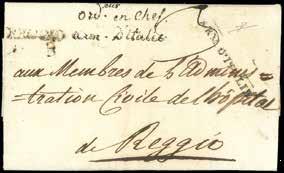 Ord.eur en Chef
arm. D'Italie
REGGIO
ARM. D'ITALIE
aux Membres de L'Admini
tration Civile de L'hôpital
de Reggio